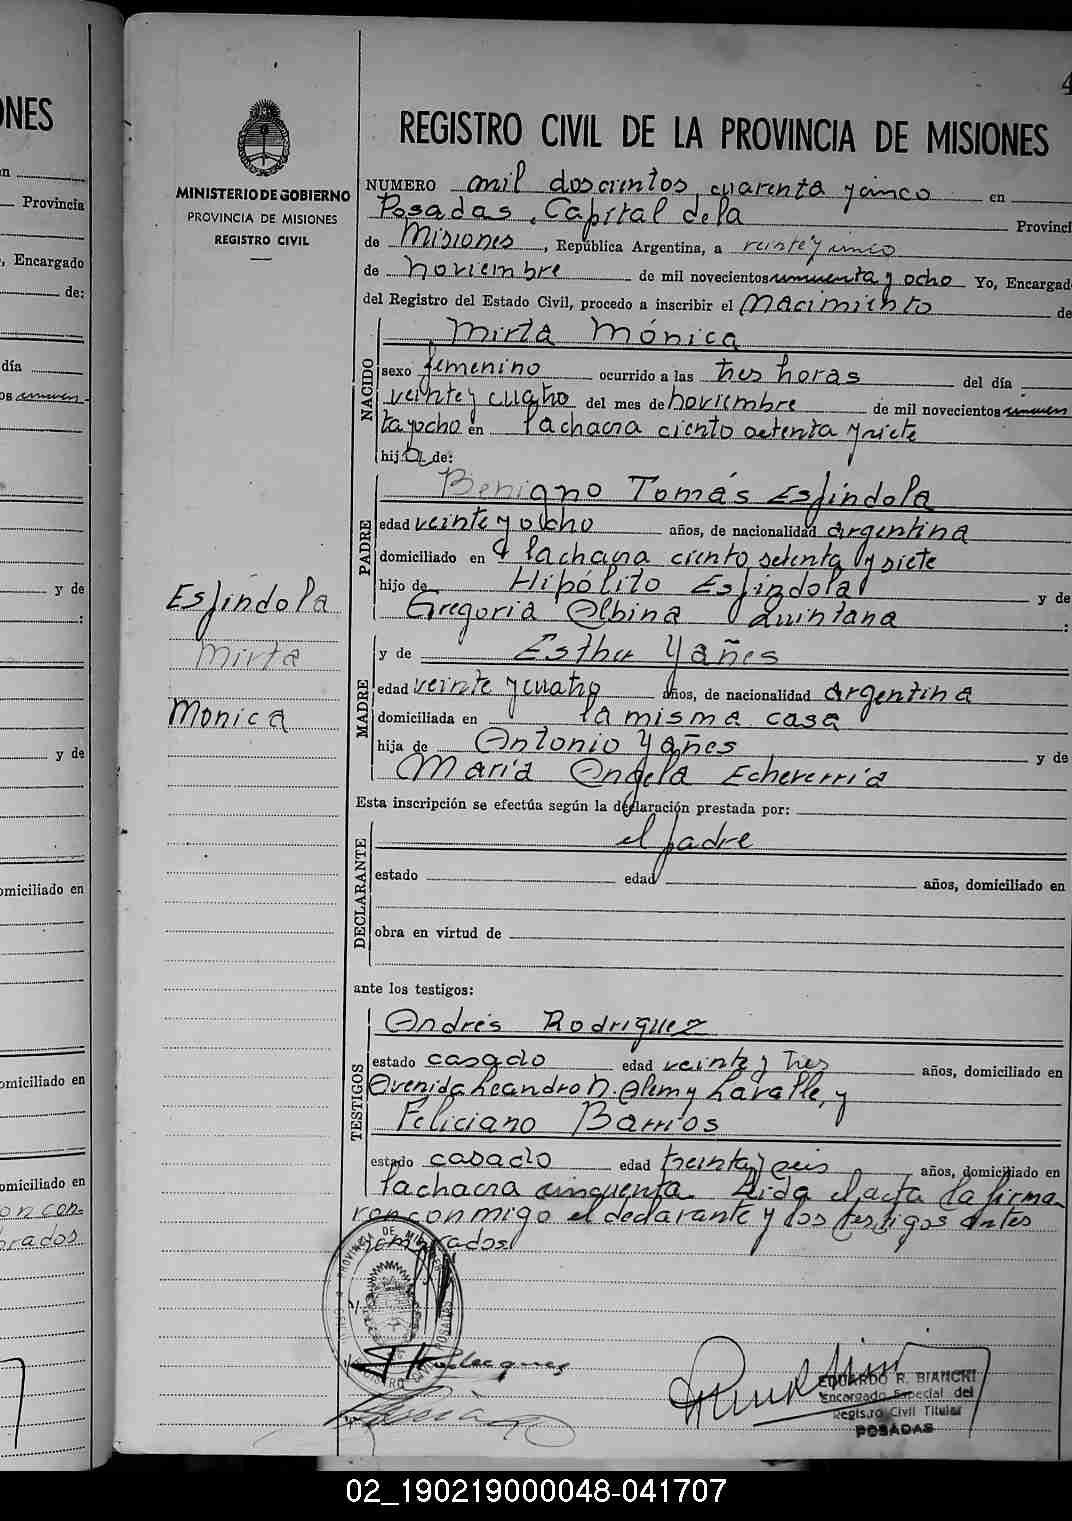 ONES
n
Provincia
, Encargado
de:
día
y de
:
y de
omiciliado en
omiciliado en
omiciliado en
on con-
brados
4
MINISTERIO DE GOBIERNO
PROVINCIA DE MISIONES
REGISTRO CIVIL
Espíndola
Mirta
Monica
REGISTRO CIVIL DE LA PROVINCIA DE MISIONES
NUMERO mil doscientos cuarenta y cinco en
Posadas, Capital de la Provinci
de Misiones, República Argentina, a veinte y cinco
de noviembre de mil novecientos cincuenta y ocho Yo, Encargad
del Registro del Estado Civil, procedo a inscribir el Nacimiento de
NACIDO
Mirta Mónica
sexo femenino ocurrido a las tres horas del día
veinte y cuatro del mes de noviembre de mil novecientos cincuen
ta y ocho en la chacra ciento setenta y siete
hija de:
PADRE
Benigno Tomás Espíndola
edad veinte y ocho años, de nacionalidad argentina
domiciliado en la chacra ciento setenta y siete
hijo de Hipólito Espíndola y de
Gregoria Albina Quintana :
MADRE
y de Esther Yañes
edad veinte y cuatro años, de nacionalidad argentina
domiciliada en la misma casa
hija de Antonio Yañes y de
María Angela Echeverria
Esta inscripción se efectúa según la declaración prestada por:
DECLARANTE
el padre
estado edad años, domiciliado en
obra en virtud de
ante los testigos:
TESTIGOS
Andrés Rodriguez
estado casado edad veinte y tres años, domiciliado en
Avenida Leandro N. Alem y Lavalle, y
Feliciano Barrios
estado casado edad treinta y seis años, domiciliado en
la chacra cincuenta. Leida el acta la firma-
ron conmigo el declarante y los testigos antes
nombrados
EDUARDO R. BIANCHI
Encargado Especial del
Registro Civil Titular
POSADAS
02_190219000048-041707